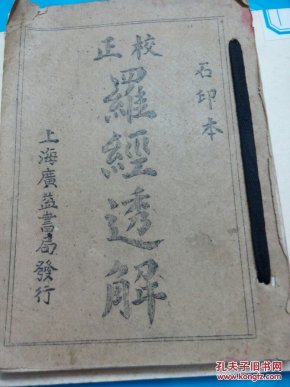 石印本
校正
羅經透解
上海廣益書局發行
孔夫子旧书网